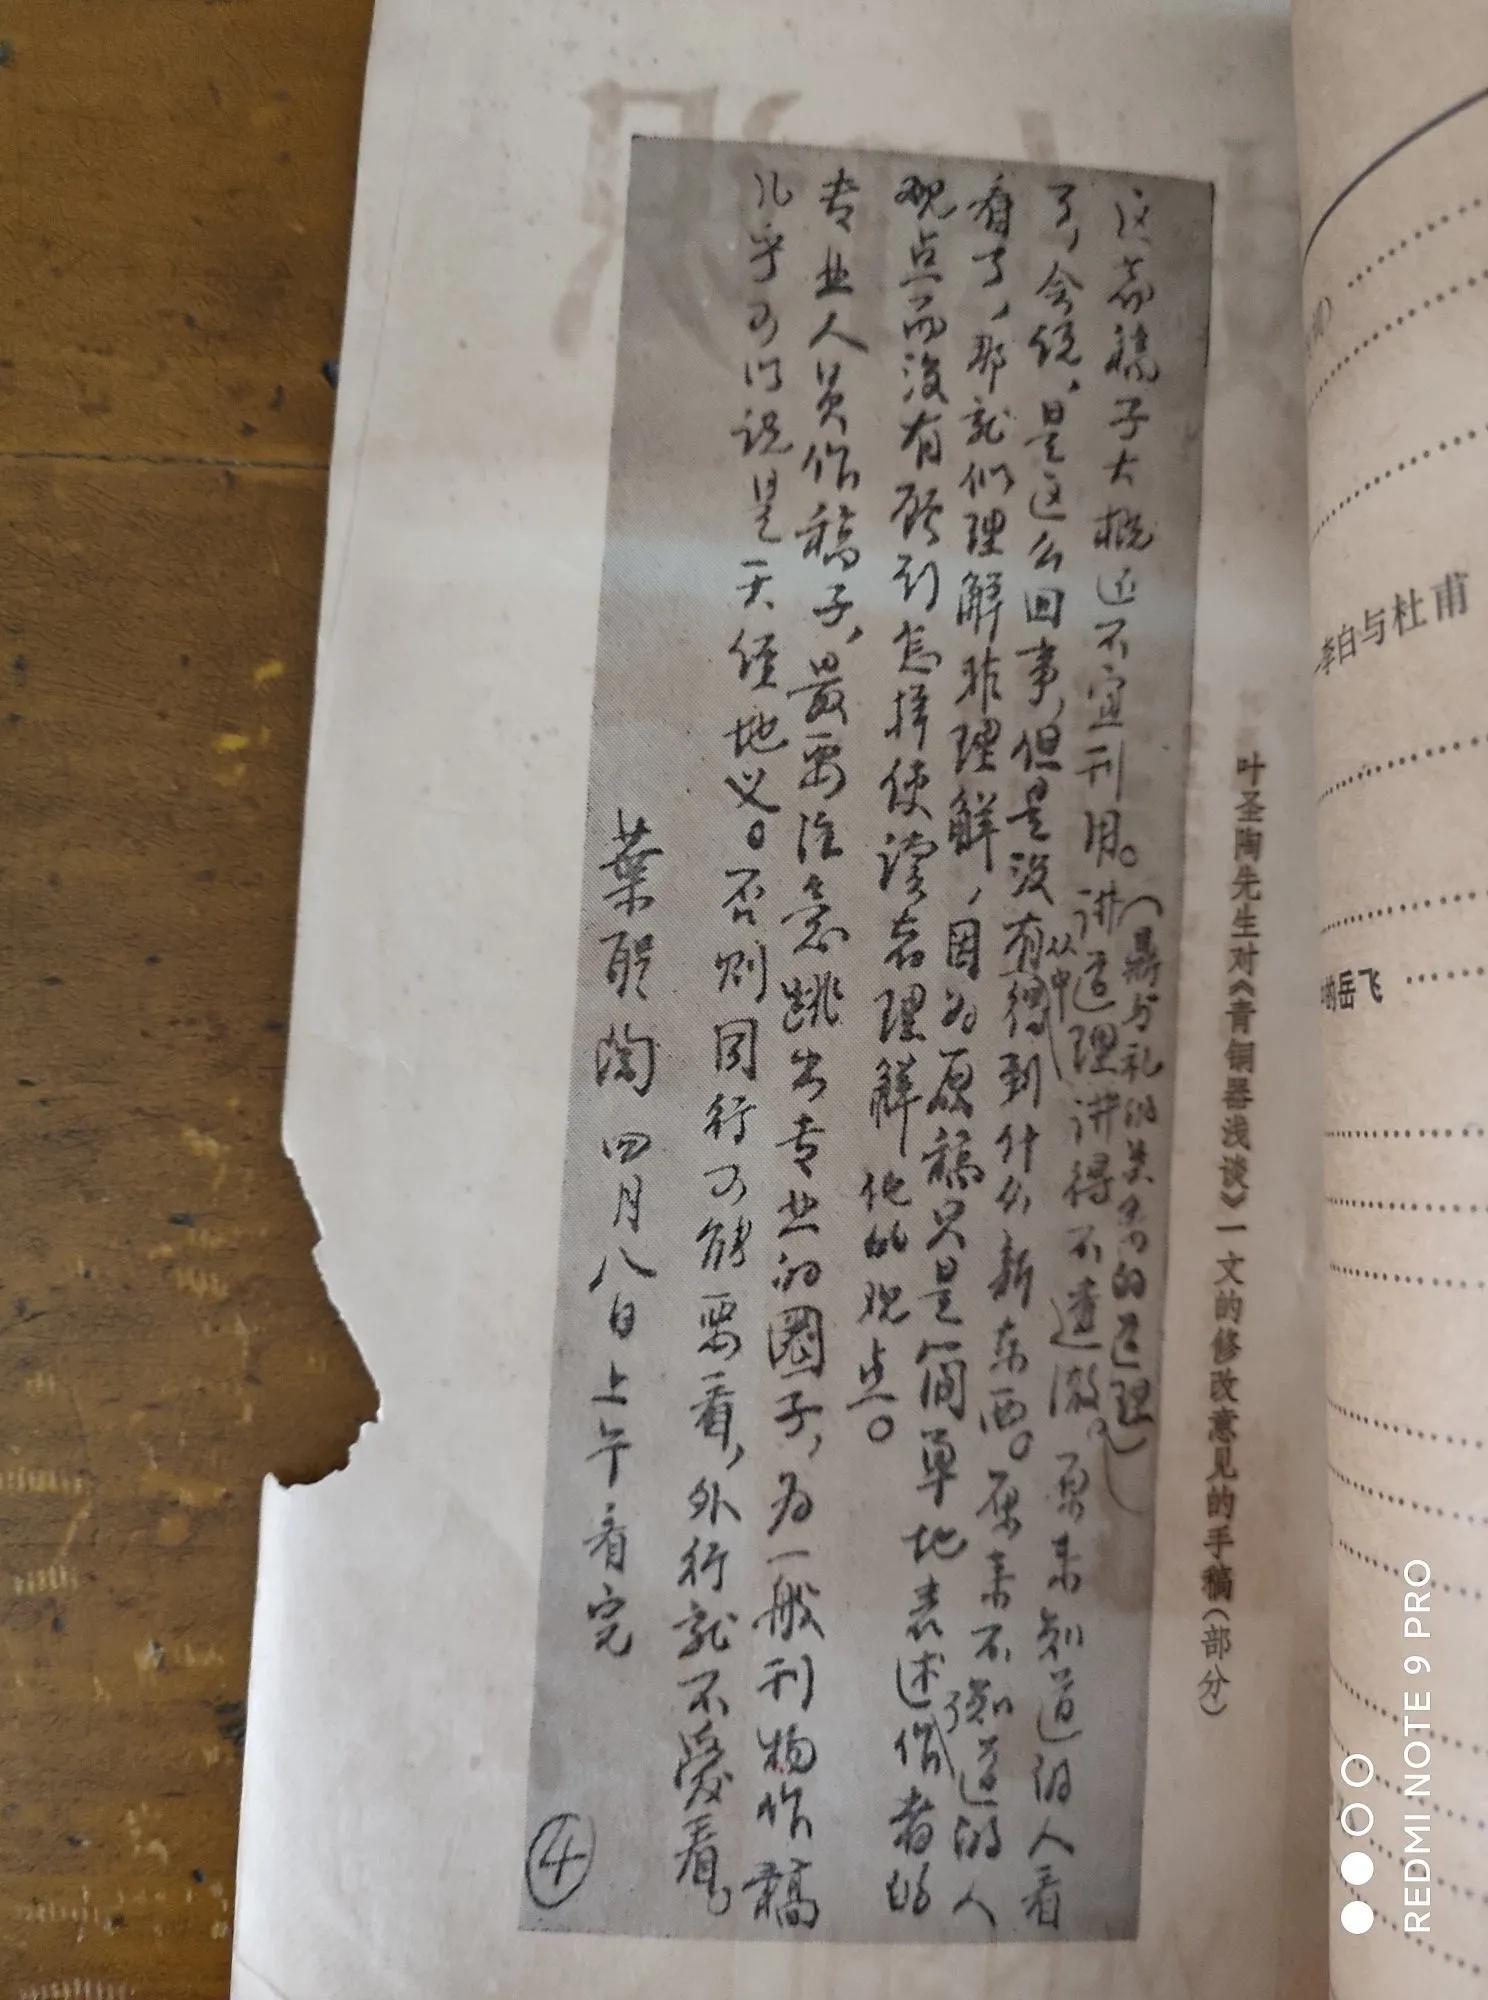 叶圣陶先生对《青铜器浅谈》一文的修改意见的手稿（部分）
这篇稿子大概还不宜刊用。讲道理讲得不透澈。原来知道的人看
（鼎与礼的关系的道理）
了，会说，是这么回事，但是没有从中得到什么新东西。原来不知道的人
看了，那就似理解非理解，因为原稿只是简单地表述了作者的
观点而没有顾到怎样使读者理解他的观点。
专业人员作稿子，最要注意跳出专业的圈子，为一般刊物作稿
几乎可以说是天经地义。否则同行可能要看，外行就不爱看。
葉聖陶 四月八日上午看完
④
李白与杜甫
的岳飞
REDMI NOTE 9 PRO